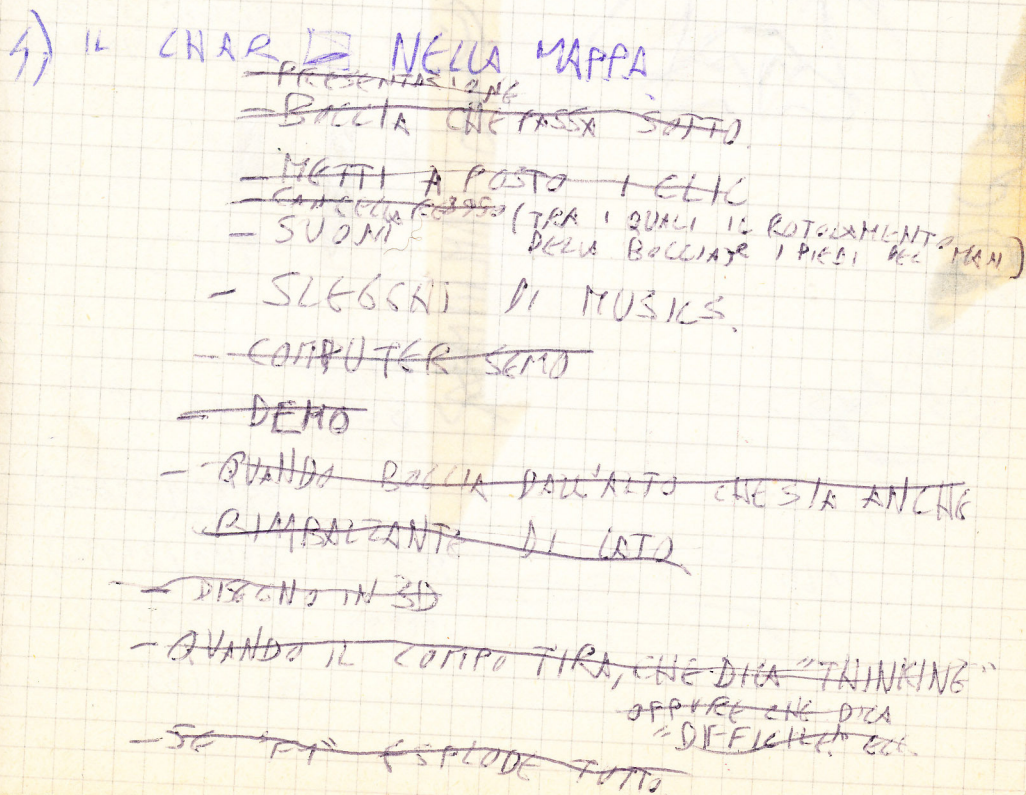 4) IL CHAR NELLA MAPPA
- PRESENTAZIONE
- BOCCIA CHE PASSA SOTTO.
- METTI A POSTO I CLIC
- CANCELLA
- SUONI (TRA I QUALI IL ROTOLAMENTO
DELLA BOCCIA E I PIEDI DEL MAN)
- SLEGGHI DI MUSICS.
- COMPUTER SCEMO
- DEMO
- QUANDO BOCCIA DALL'ALTO CHE SIA ANCHE
RIMBALZANTE DI LATO
- DISEGNO IN 3D
- QUANDO IL COMPO TIRA, CHE DICA "THINKING"
OPPURE CHE DICA
"DIFFICILE" ECC.
- SE ESPLODE TUTTO